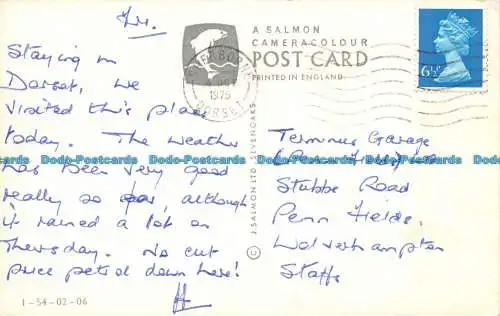 Fri.
Staying in
Dorset, we
visited this place
today. The weather
has been very good
really so far, although
it rained a lot on
Thursday. No cut
price petrol down here!
H
1-54-02-06
A SALMON
CAMERACOLOUR
POST CARD
PRINTED IN ENGLAND
1975
DORSET
6½P
J. SALMON LTD., SEVENOAKS
©
Terminus Garage
Stubbs Road
Penn Fields.
Wolverhampton
Staffs
Dodo-Postcards Dodo-Postcards Dodo-Postcards Dodo-Postcards